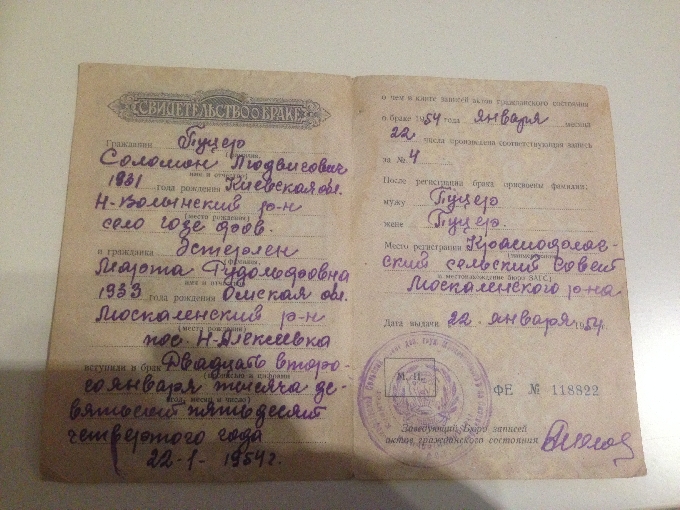 СВИДЕТЕЛЬСТВО О БРАКЕ
Гражданин Пуцер
(фамилия)
Соломон Людвисович
имя и отчество
1931 года рождения Киевская обл.
Н-Волынский р-н
(место рождения)
село
и гражданка Эстерлен
(фамилия)
Марта Рудольфовна
имя и отчество
1933 года рождения Омская обл.
Москаленский р-н
(место рождения)
пос. Н-Алексеевка
вступили в брак Двадцать второ-
го января тысяча де-
(год, месяц и число)
вятьсот пятьдесят
четвертого года
22-1-1954 г.
о чем в книге записей актов гражданского состояния
о браке 1954 года января месяца
22 числа произведена соответствующая запись
за № 4
После регистрации брака присвоены фамилии:
мужу Пуцер
жене Пуцер.
Место регистрации
(наименование
ский сельский Совет
и местонахождение бюро ЗАГС)
Москаленского р-на
Дата выдачи 22. января 1954.
М. П.
ФЕ № 118822
Заведующий Бюро записей
актов гражданского состояния